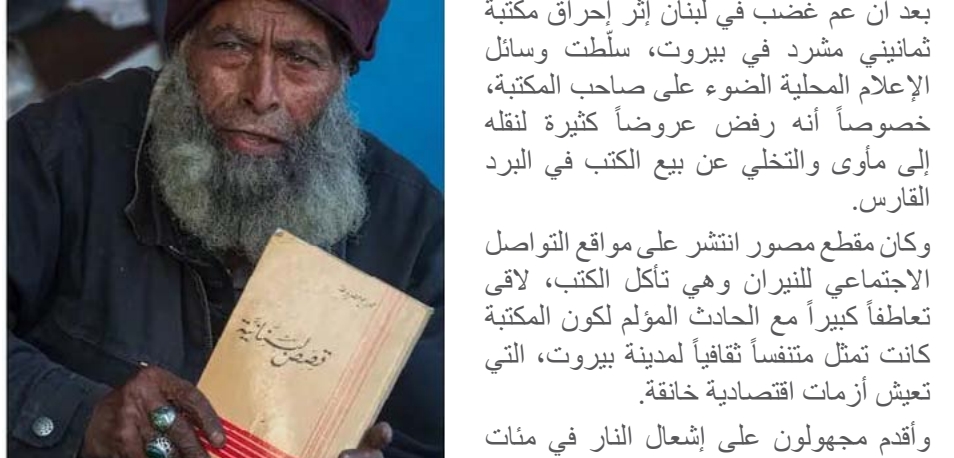 بعد أن عم غضب في لبنان إثر إحراق مكتبة
ثمانيني مشرد في بيروت، سلّطت وسائل
الإعلام المحلية الضوء على صاحب المكتبة،
خصوصاً أنه رفض عروضاً كثيرة لنقله
إلى مأوى والتخلي عن بيع الكتب في البرد
القارس.
وكان مقطع مصور انتشر على مواقع التواصل
الاجتماعي للنيران وهي تأكل الكتب، لاقى
تعاطفاً كبيراً مع الحادث المؤلم لكون المكتبة
كانت تمثل متنفساً ثقافياً لمدينة بيروت، التي
تعيش أزمات اقتصادية خانقة.
وأقدم مجهولون على إشعال النار في مئات
قصص لبنانية